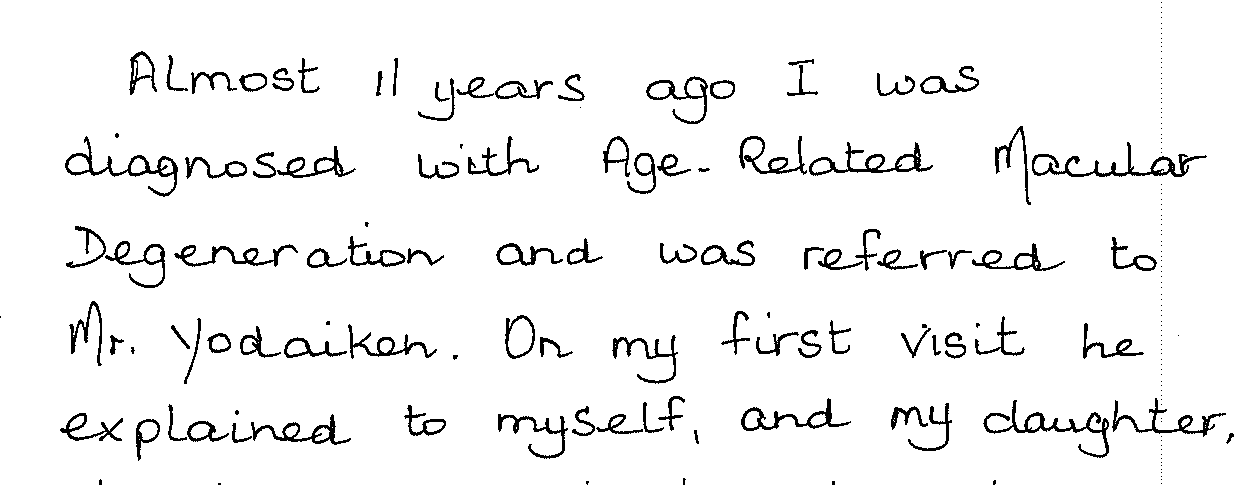 Almost 11 years ago I was
diagnosed with Age-Related Macular
Degeneration and was referred to
Mr. Yodaiken. On my first visit he
explained to myself, and my daughter,